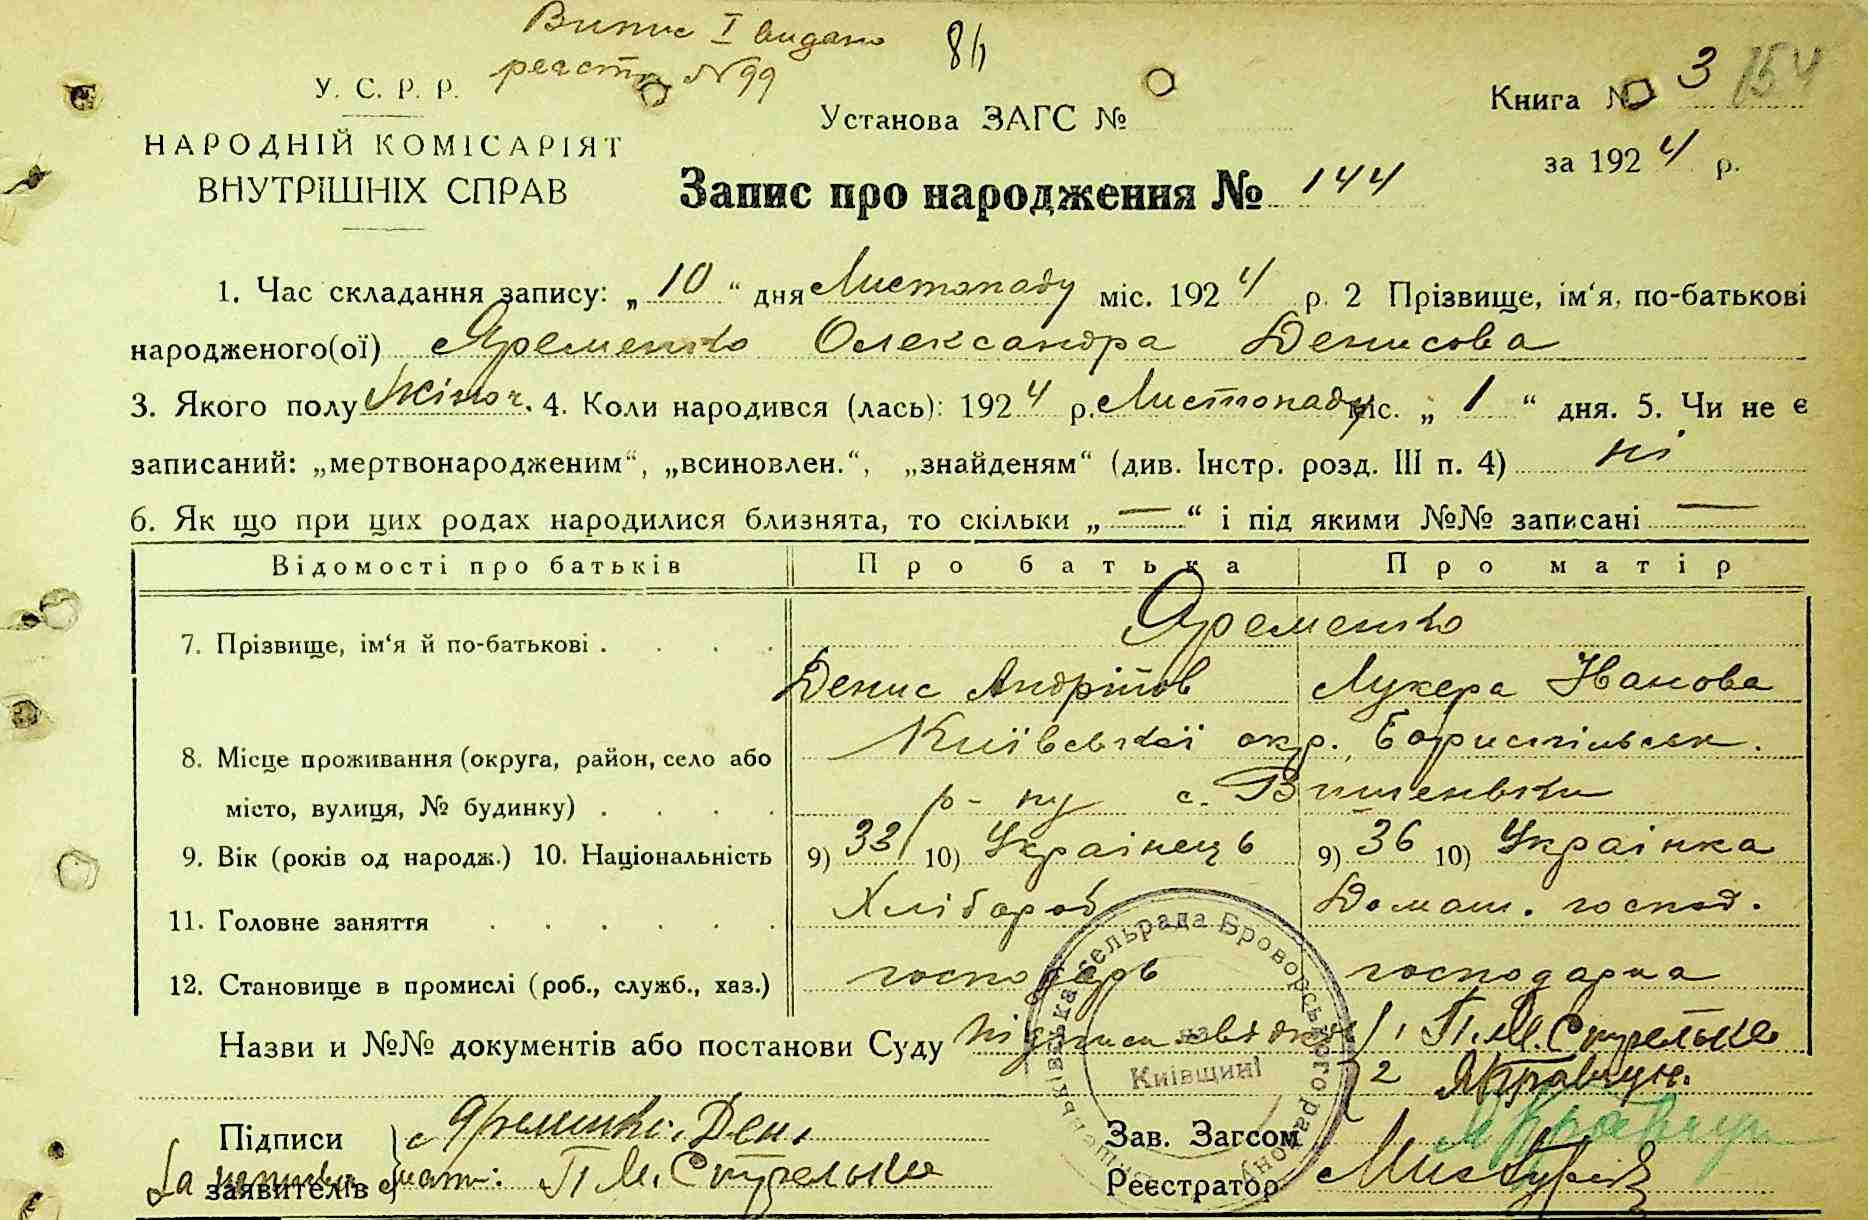 Випис І видано
реєстр N 99
У. С. Р. Р.
НАРОДНІЙ КОМІСАРІЯТ
ВНУТРІШНІХ СПРАВ
Установа ЗАГС №
Книга № 3 154
за 1924 р.
Запис про народження № 144
1. Час складання запису: „10“ дня Листопаду міс. 1924 р. 2 Прізвище, ім‘я, по-батькові
народженого(ої) Яременко Олександра Денисова
3. Якого полу жіноч. 4. Коли народився (лась): 1924 р. Листопаду міс. „1“ дня. 5. Чи не є
записаний: „мертвонародженим“, „всиновлен.“, „знайденям“ (див. Інстр. розд. III п. 4) ні
6. Як що при цих родах народилися близнята, то скільки „—“ і під якими №№ записані —
Відомості про батьків Про батька Про матір
7. Прізвище, ім‘я й по-батькові . . . . Яременко
Денис Андріїов Лукера Іванова
8. Місце проживання (округа, район, село або Київської окр. Бориспільськ.
місто, вулиця, № будинку) . . . . р-ну с. Вишеньки
9. Вік (років од народж.) 10. Національність 9) 33 10) Українець 9) 36 10) Українка
11. Головне заняття . . . . . . Хлібороб Домаш. господ.
12. Становище в промислі (роб., служб., хаз.) господарь господарка
Назви и №№ документів або постанови Суду 1 П. М. Стрелько
2 Я Кравчун.
Підписи Яременко Ден
заявителів П М. Стрелько
Зав. Загсом Я Кравчун
Реєстратор
сельрада Броворського району на Київщині